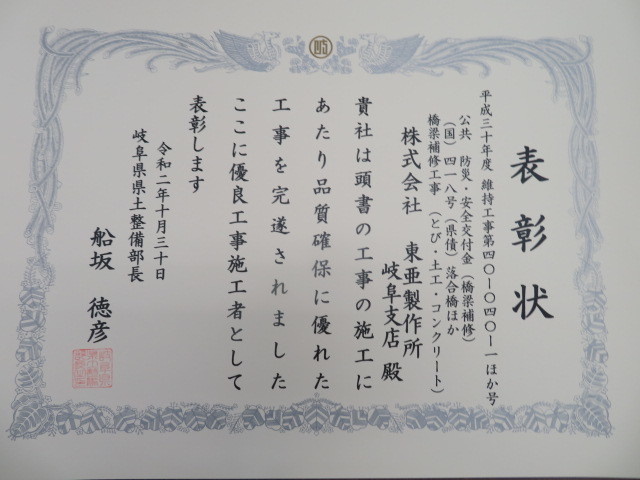 岐
表彰状
平成三十年度 維持工事第四〇ー〇四〇ー一ほか号
公共 防災・安全交付金(橋梁補修)
(国)四一八号(県債)落合橋ほか
橋梁補修工事 (とび・土工・コンクリート)
株式会社 東亜製作所
岐阜支店 殿
貴社は頭書の工事の施工に
あたり品質確保に優れた
工事を完遂されました
ここに優良工事施工者として
表彰します
令和二年十月三十日
岐阜県県土整備部長
船坂 徳彦